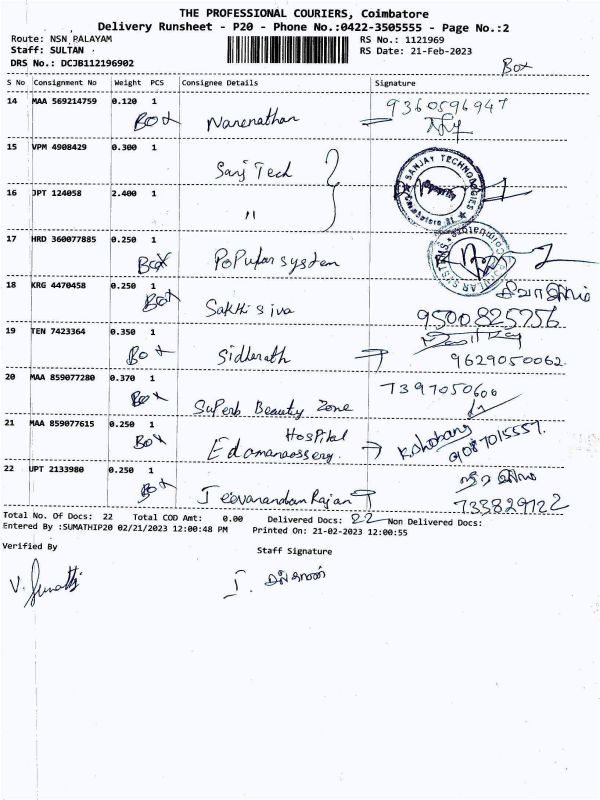 THE PROFESSIONAL COURIERS, Coimbatore
Delivery Runsheet - P20 - Phone No.:0422-3505555 - Page No.:2
Route: NSN PALAYAM RS No.: 1121969
Staff: SULTAN RS Date: 21-Feb-2023
DRS No.: DCJB112196902
Box
S No Consignment No Weight PCS Consignee Details Signature
14 MAA 569214759 0.120 1 9360596947
Box Narenathan
15 VPM 4908429 0.300 1
Sanj Tech SANJAY TECHNOLOGIES
16 JPT 124058 2.400 1
"
17 HRD 360077885 0.250 1
Box Popular system
18 KRG 4470458 0.250 1
Box Sakthi siva 9500825756
19 TEN 7423364 0.350 1
Box Sidharath 9629050062
20 MAA 859077280 0.370 1 7397050600
Box Superb Beauty Zone
21 MAA 859077615 0.250 1
Box Hospital 9087015557
22 UPT 2133980 0.250 1
Box Jeevanandan Rajan 733829722
Total No. Of Docs: 22 Total COD Amt: 0.00 Delivered Docs: 22 Non Delivered Docs:
Entered By :SUMATHIP20 02/21/2023 12:00:48 PM Printed On: 21-02-2023 12:00:55
Verified By Staff Signature
V. Sumathi